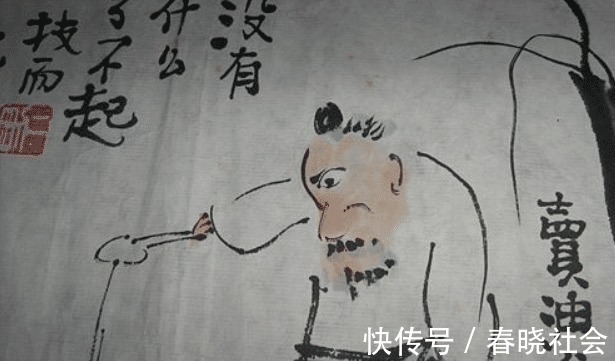 賣油
没有
什么
了不起
技而
快传号 / 春晓社会